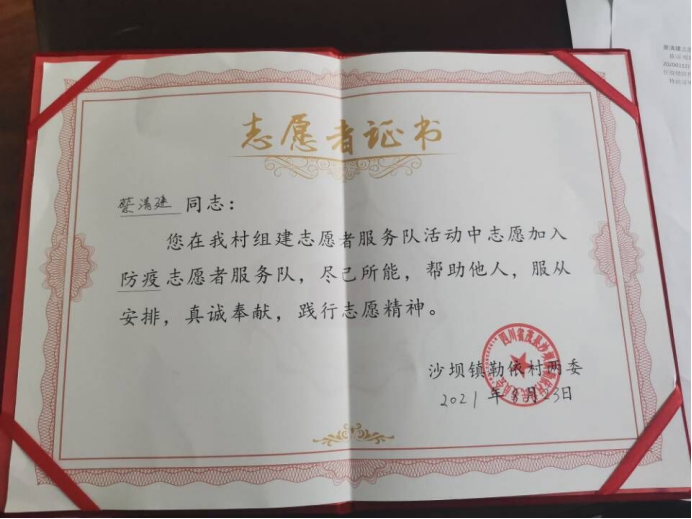 志愿者证书
蔡清建 同志：
您在我村组建志愿者服务队活动中志愿加入
防疫志愿者服务队，尽己所能，帮助他人，服从
安排，真诚奉献，践行志愿精神。
沙坝镇勒依村两委
2021 年 8 月 23 日
四川省茂县沙坝